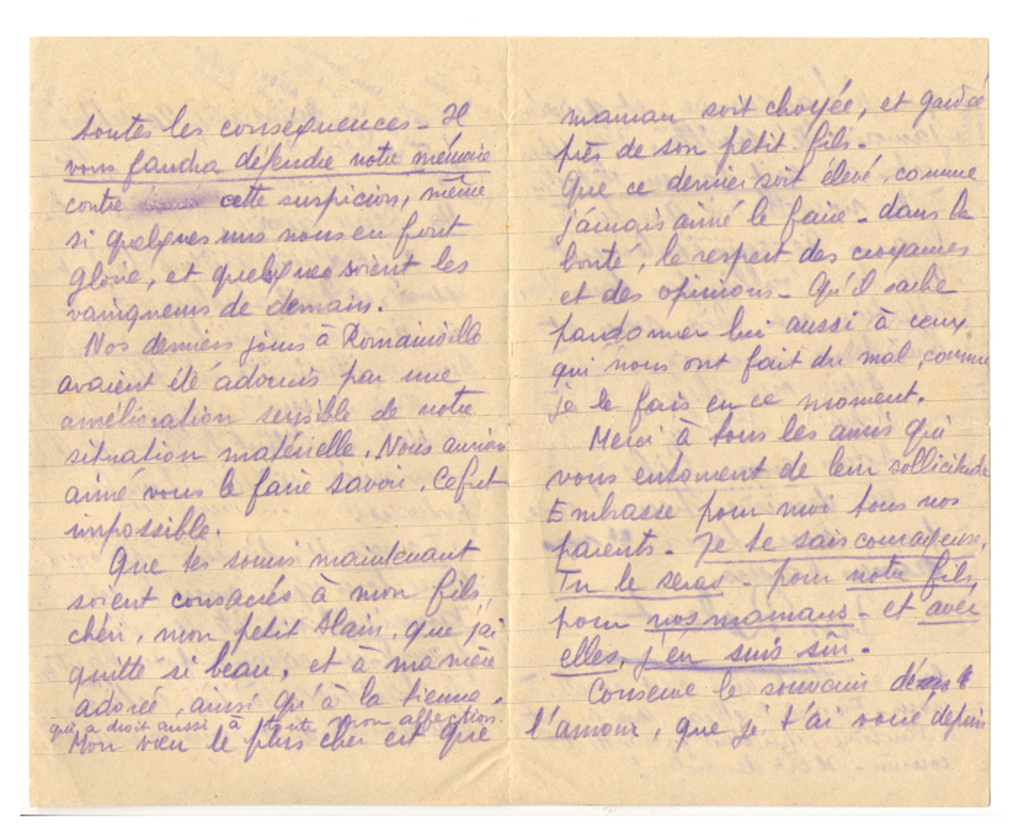 toutes les conséquences - Il
vous faudra défendre notre mémoire
contre cette suspicion, même
si quelques uns nous en font
gloire, et quelques soient les
vainqueurs de demain.
Nos derniers jours à Romainville
avaient été adoucis par une
amélioration sensible de notre
situation matérielle. Nous aurions
aimé vous le faire savoir. Ce fut
impossible.
Que tes soucis maintenant
soient consacrés à mon fils
chéri, mon petit Alain, que j'ai
quitté si beau, et à ma mère
adorée, ainsi qu'à la tienne,
qui a droit aussi à toute mon affection.
Mon vœu le plus cher est que
maman soit choyée, et gardée
près de son petit fils.
Que ce dernier soit élevé, comme
j'amais aimé le faire - dans la
bonté, le respect des croyances
et des opinions - Qu'il sache
pardonner lui aussi à ceux
qui nous ont fait du mal, comme
je le fais en ce moment.
Merci à tous les amis qui
vous entourent de leur sollicitude
Embrasse pour moi tous nos
parents - Je te sais courageuse,
Tu le seras - pour notre fils,
pour nos mamans - et avec
elles, j'en suis sûr.
Conserve le souvenir de
l'amour, que je t'ai voué depuis